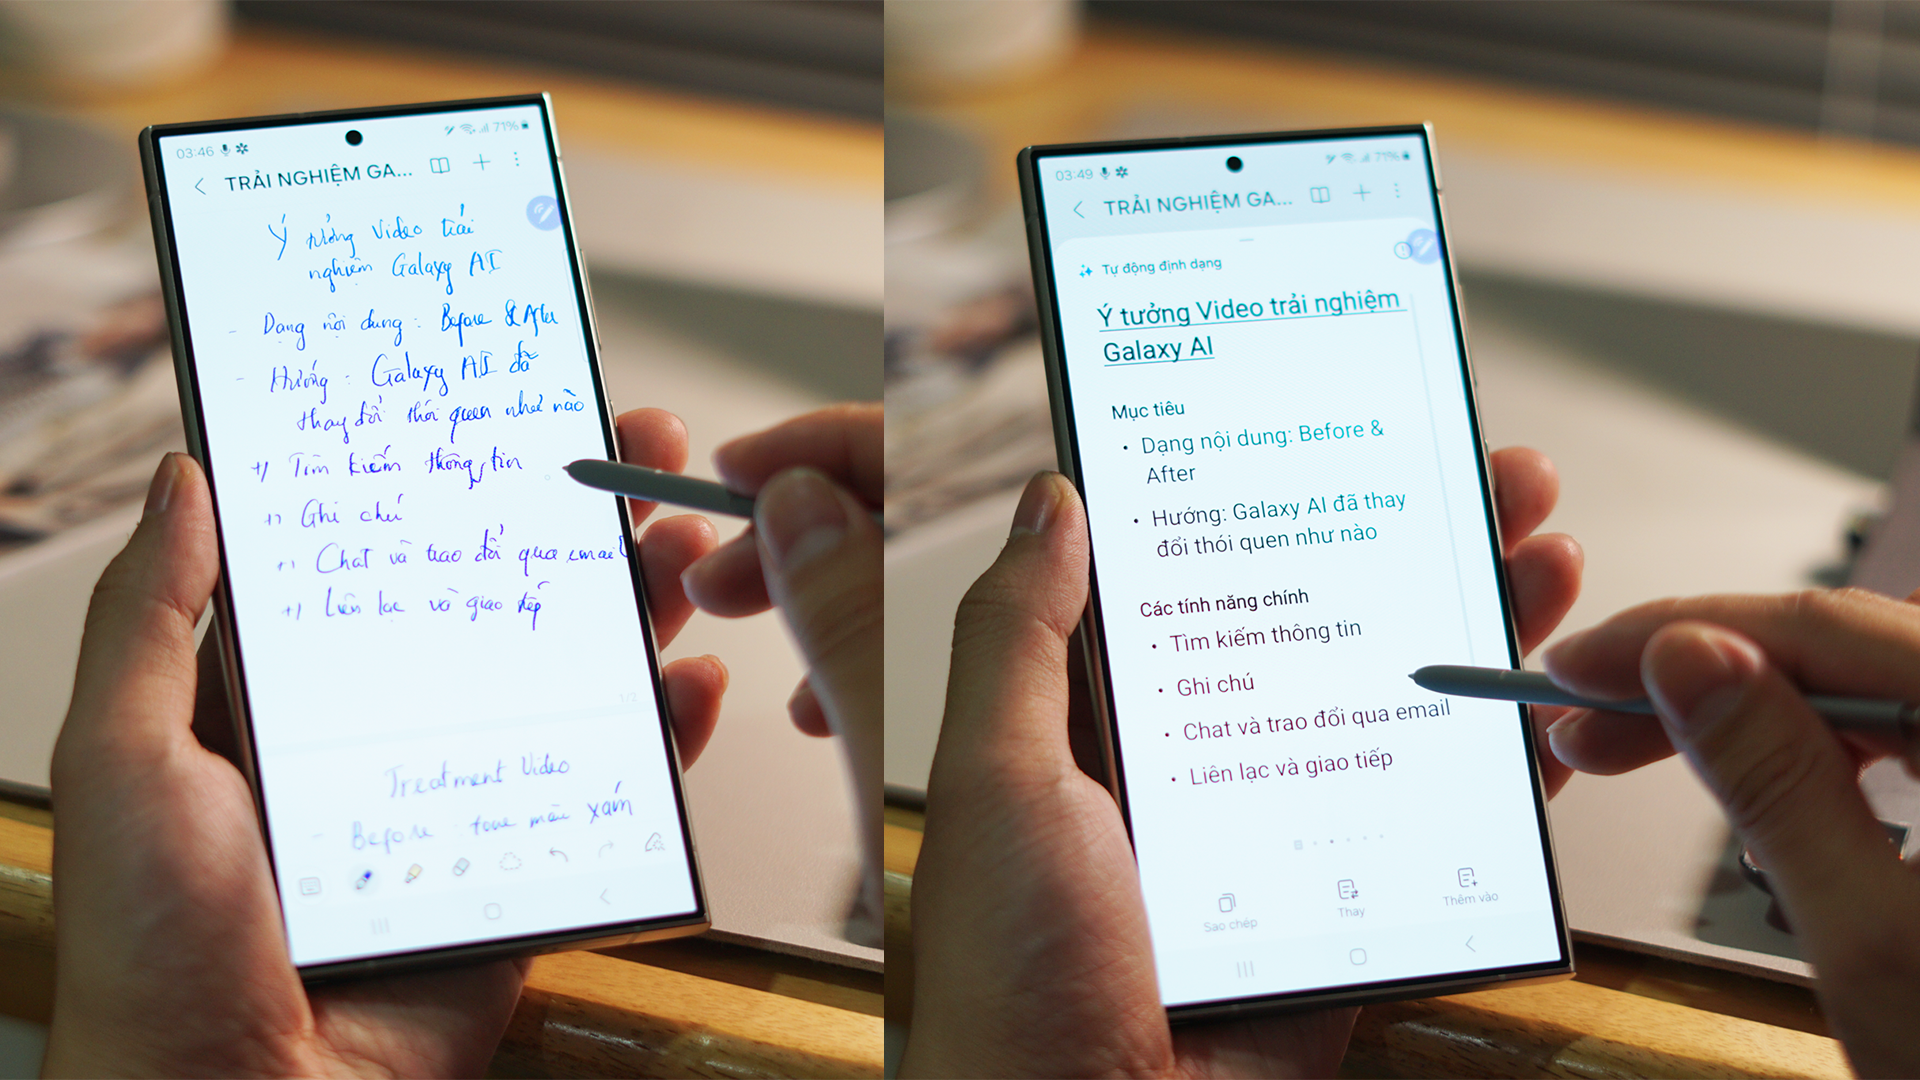 03:46
71%
TRẢI NGHIỆM GA...
Ý tưởng Video trải
nghiệm Galaxy AI
- Dạng nội dung : Before & After
- Hướng : Galaxy AI đã
thay đổi thói quen như nào
+) Tìm kiếm thông tin
+) Ghi chú
+) Chat và trao đổi qua email
+) Liên lạc và giao tiếp
1/2
Treatment Video
- Before : tone màu xám
03:49
71%
TRẢI NGHIỆM GA...
Tự động định dạng
Ý tưởng Video trải nghiệm
Galaxy AI
Mục tiêu
• Dạng nội dung: Before &
After
• Hướng: Galaxy AI đã thay
đổi thói quen như nào
Các tính năng chính
• Tìm kiếm thông tin
• Ghi chú
• Chat và trao đổi qua email
• Liên lạc và giao tiếp
Sao chép
Thay
Thêm vào